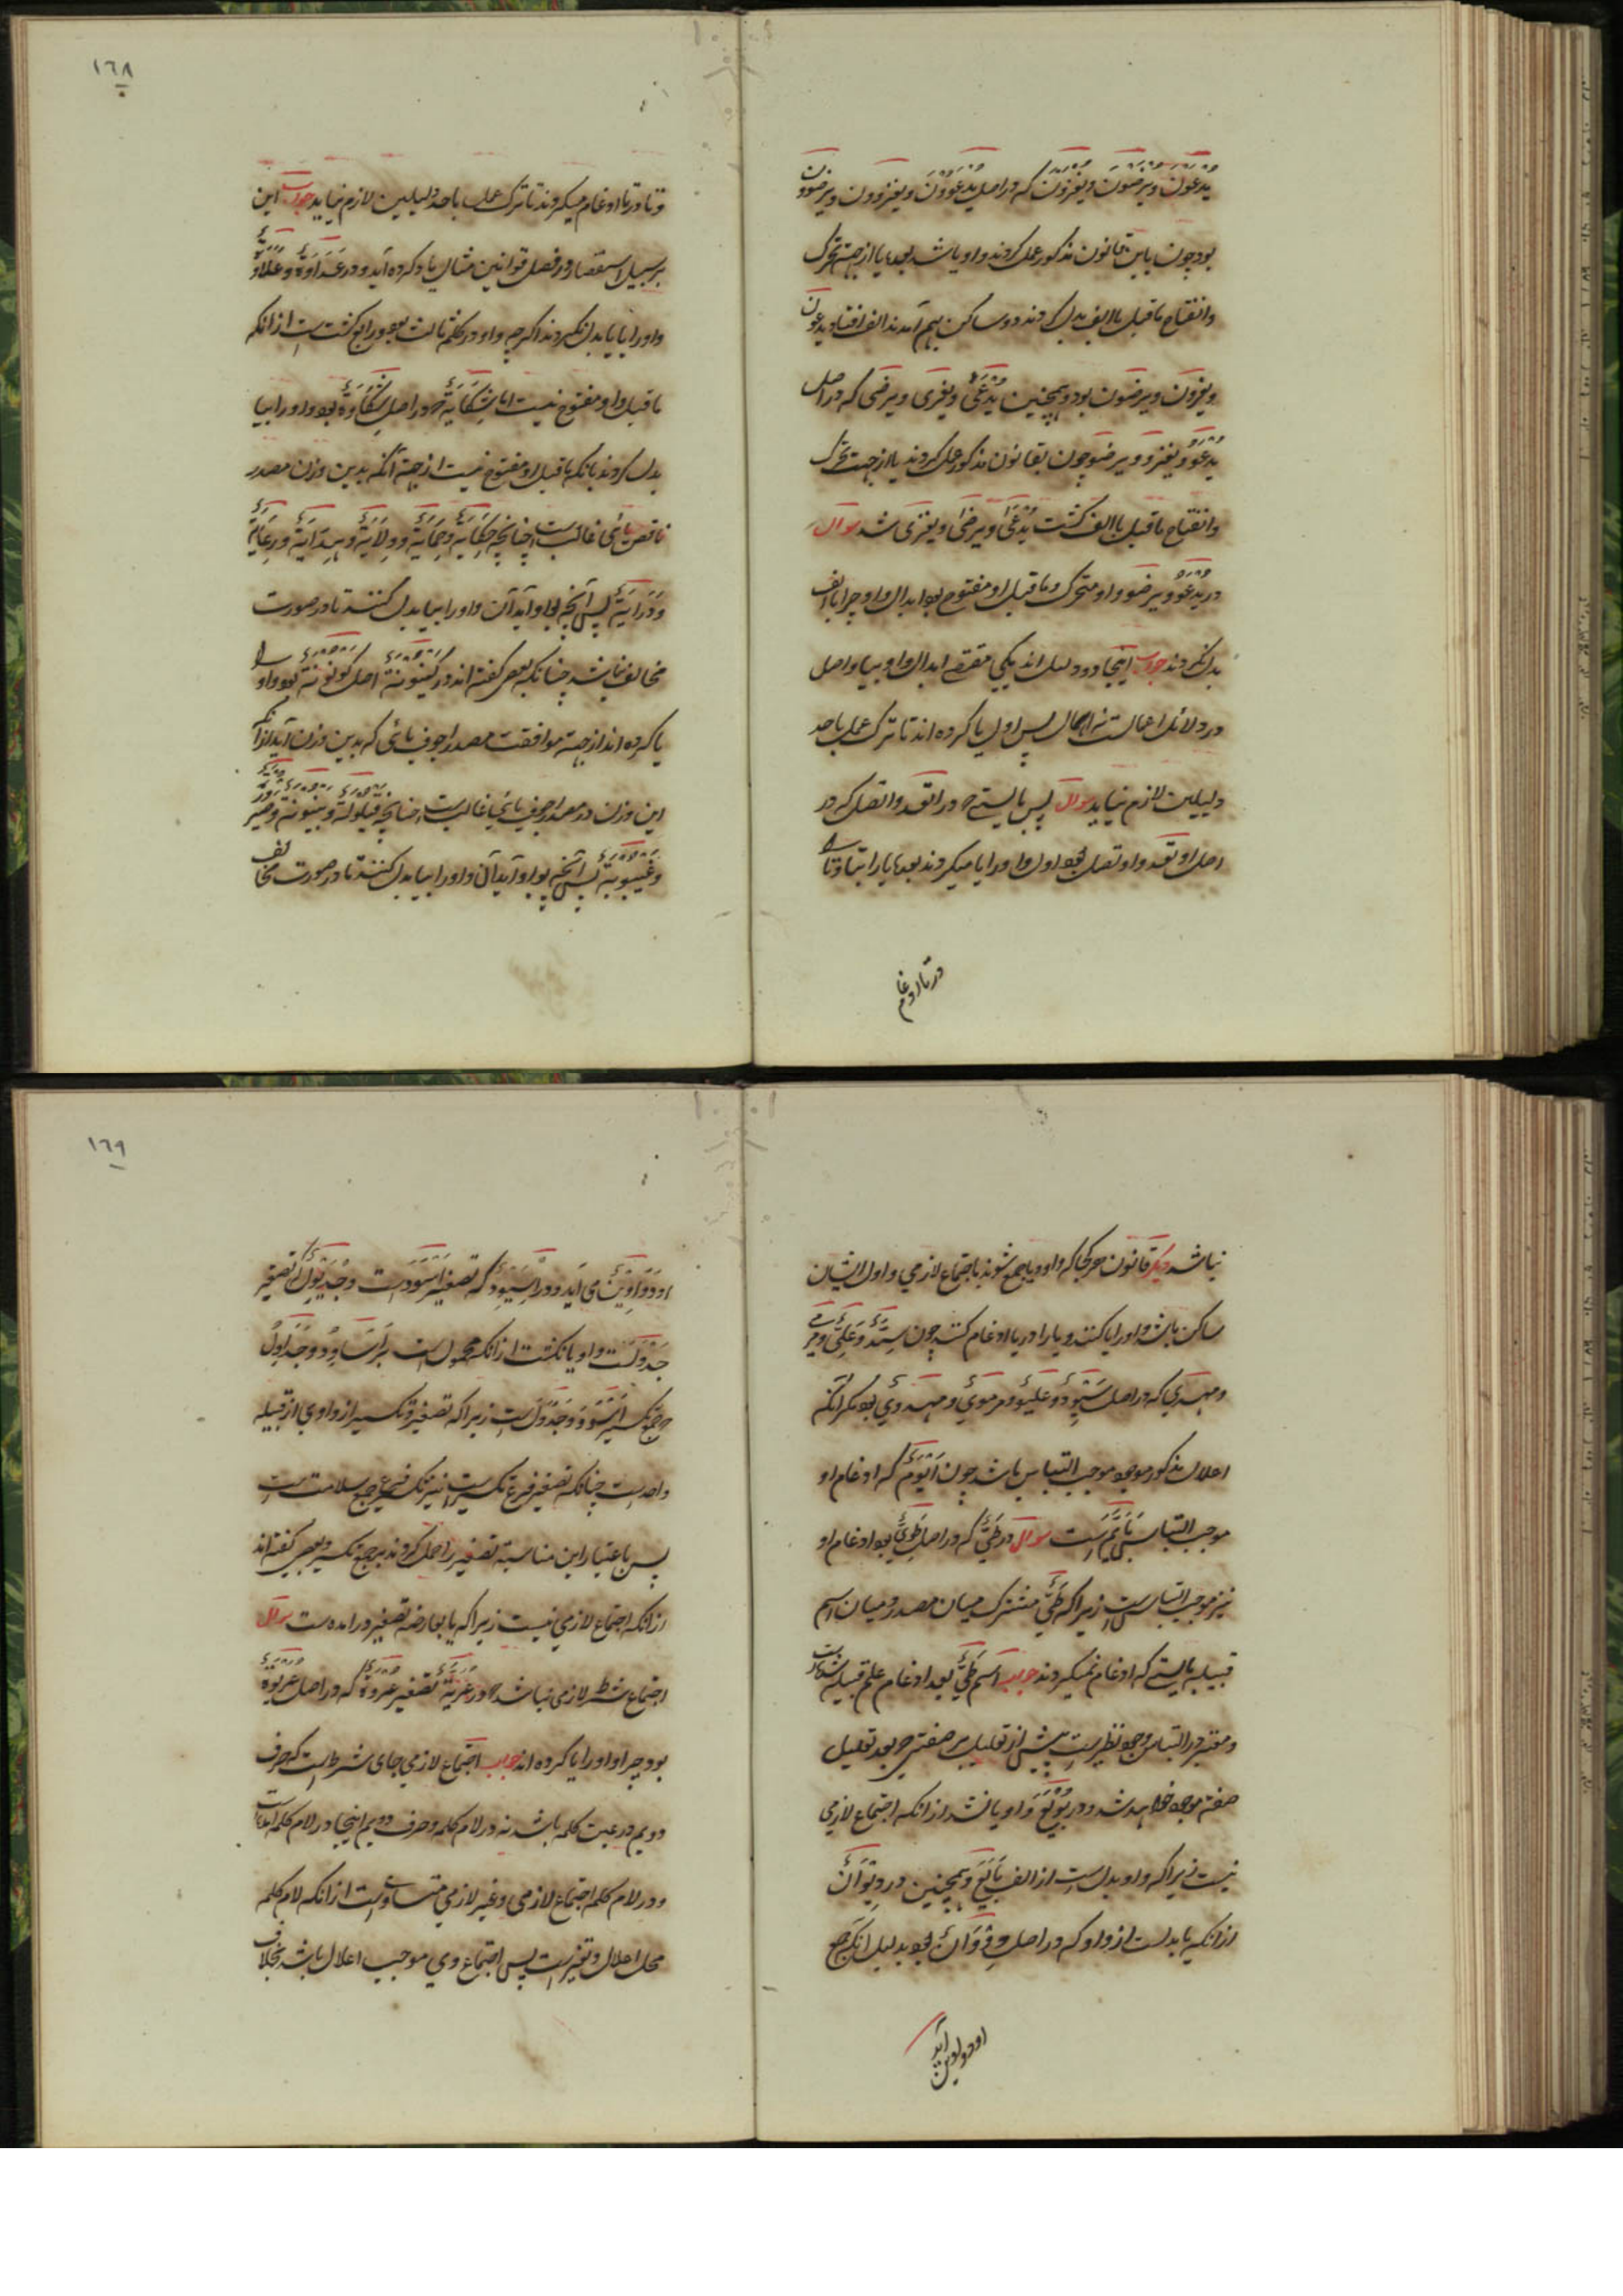 یدعون ویرضون ویغزون که در اصل یدعوون ویغزوون ویرضوون
بود چون باین قانون مذکور عمل کردند واو یا شد بعده یا از جهة تحرک
وانفتاح ماقبل بالف بدل کردند دو ساکن بهم آمدند الف افتاد یدعون
ویغزون ویرضون بود وهمچنین یدعی ویغزی ویرضی که در اصل
یدعو ویغزو ویرضو چون بقانون مذکور عمل کردند یا از جهت تحرک
وانفتاح ماقبل با الف کشت یدعی ویرضی ویغزی شد سوال
در یدعو ویرضو واو متحرک وماقبل او مفتوح بود ابدال واو چرا بالف
بدل نکردند جواب اینجا دو دلیل اند یکی مقتضی ابدال واو بیا واصل
در دلائل اعمالست نه اهمال پس اول یا کرده اند تا ترک عمل باحد
دلیلین لازم نیاید سوال پس بایستی که در اتقد واتصل که در
اصل اوتقد واوتصل بود اول واو را یا میکردند بعده یا را بتا وتا را
در تا ادغام
۱٦۸
وتا در تا ادغام میکردند تا ترک عمل باحد دلیلین لازم نیاید جواب این
بر سبیل استقصا در فصل قوانین مثال یاد کرده آید ودر عداوة وعلاوة
واو را بیا بدل نکردند اگرچه واو در کلمه ثالث بود ورابع کشتست از انکه
ماقبل واو مفتوح نیست اما شکایة که در اصل شکاوة بود واو را بیا
بدل کردند بانکه ماقبل او مفتوح نیست از جهة آنکه بدین وزن مصدر
ناقص یائی غالب است چنانچه حکایة وحمایة وولایة وهدایة ورعایة
ودرایة پس آنچه بواو آید آن واو را بیا بدل کنند تا در صورت
مخالف نباشد چنانکه بعض کفته اند در کینونة اصل کونونة بود واو را
یا کرده اند از جهة موافقت مصدر اجوف یائی که بدین وزن آید از آنکه
این وزن در مصدر اجوف یائی غالب است چنانچه قیلولة وبینونة وصیرورة
وغیبوبة پس آنچه بواو آید آن واو را بیا بدل کنند تا در صورت مخالف
نباشد دیگر قانون هر کجا که واو ویا جمع شوند باجتماع لازمی واول ایشان
ساکن باشد واو را یا کنند ویا را در یا ادغام کنند چون سید وعلی ومرمی
ومهدی که در اصل سیود وعلیو ومرموی ومهدوی بود مکر آنکه
اعلال مذکور موجب التباس باشد چون ایوم که ادغام او
موجب التباس بایم است سوال در طی که در اصل طوی بود ادغام او
نیز موجب التباس است زیرا که طی مشترک میان مصدر ومیان اسم
قبیله بایستی که ادغام نمیکردند جواب اسم طی بعد ادغام علم قبیله شده است
ومعتبر در التباس وجود نظیرست پیش از تعلیل بر صفتی که بعد تعلیل
صفت موجود خواهد شد ودر بویع واو یا نشد از انکه اجتماع لازمی
نیست زیرا که واو بدل است از الف بایع وهمچنین در دیوان
از انکه یا بدلست از واو که در اصل دووان بود بدلیل انکه جمع
او دواوین آید
۱٦۹
او دواوین می آید ودر اسیود که تصغیر اسودست وجدیول که تصغیر
جدولست واو یا نکشت از انکه محمول است بر اساود وجداول
که جمع تکسیر اسود وجدول است زیرا که تصغیر وتکسیر از واوی از قبیله
واحد است چنانکه تصغیر فرع تکسیر است نیز تکسیر فرع جمع سلامت است
پس باعتبار این مناسبة تصغیر را حمل کردند بر جمع تکسیر وبعض کفته اند
از انکه اجتماع لازمی نیست زیرا که یا بعارضه تصغیر در امده ست سوال
اجتماع شرط لازمی نباشد که در عریة تصغیر عروة که در اصل عریوة
بود چرا واو را یا کرده اند جواب اجتماع لازمی جای شرط است که حرف
دویم در عین کلمه باشد نه در لام کلمه وحرف دویم اینجا در لام کلمه است
ودر لام کلمه اجتماع لازمی وغیر لازمی متساوی است از انکه لام کلمه
محل اعلال وتغیر است پس اجتماع وی موجب اعلال باشد بخلاف